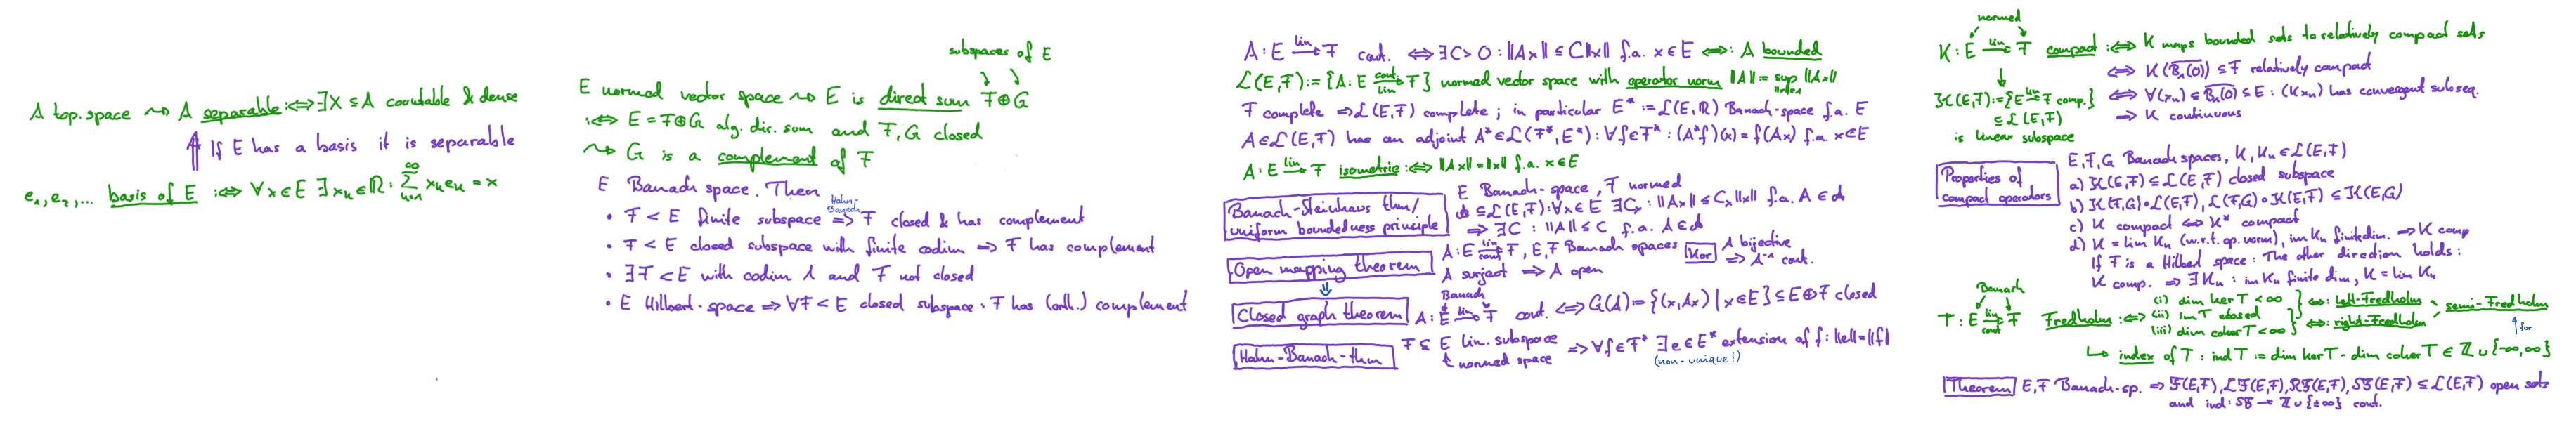 A top. space ⤳ A separable :⟺ ∃X ⊆ A countable & dense
⇑ If E has a basis it is separable
e₁, e₂, ... basis of E :⟺ ∀x∈E ∃xₙ∈ℝ: ∑_{n=1}^∞ xₙeₙ = x
subspaces of E
E normed vector space ⤳ E is direct sum F⊕G
:⟺ E = F⊕G alg. dir. sum and F, G closed
⤳ G is a complement of F
E Banach space. Then
• F < E finite subspace ⟹ F closed & has complement
Hahn-Banach
• F < E closed subspace with finite codim ⟹ F has complement
• ∃F < E with codim 1 and F not closed
• E Hilbert-space ⟹ ∀F < E closed subspace: F has (orth.) complement
A: E →^{lin} F cont. ⟺ ∃C > 0: ||Ax|| ≤ C||x|| f.a. x∈E ⟺: A bounded
L(E,F) := {A: E →^{cont}_{lin} F} normed vector space with operator norm ||A|| := sup_{||x||≤1} ||Ax||
F complete ⟹ L(E,F) complete; in particular E* := L(E,ℝ) Banach-space f.a. E
A∈L(E,F) has an adjoint A*∈L(F*,E*): ∀f∈F*: (A*f)(x) = f(Ax) f.a. x∈E
A: E →^{lin} F isometric :⟺ ||Ax|| = ||x|| f.a. x∈E
Banach-Steinhaus thm/
uniform boundedness principle
E Banach-space, F normed
𝒜 ⊆ L(E,F): ∀x∈E ∃Cₓ: ||Ax|| ≤ Cₓ||x|| f.a. A∈𝒜
⟹ ∃C: ||A|| ≤ C f.a. A∈𝒜
Open mapping theorem
A: E →^{lin}_{cont} F, E,F Banach spaces
A surject ⟹ A open
Kor A bijective
⟹ A⁻¹ cont.
⇓
Closed graph theorem
Banach
A: E →^{lin} F cont. ⟺ G(A) := {(x,Ax) | x∈E} ⊆ E⊕F closed
Hahn-Banach-thm
F ⊆ E lin. subspace ⟹ ∀f∈F* ∃e∈E* extension of f: ||e|| = ||f||
normed space
(non-unique!)
normed
K: E →^{lin} F compact :⟺ K maps bounded sets to relatively compact sets
⟺ K(B₁(0)) ⊆ F relatively compact
⟺ ∀(xₙ) ⊆ B₁(0) ⊆ E: (Kxₙ) has convergent subseq.
⟹ K continuous
K(E,F) := {E →^{lin} F comp.}
⊆ L(E,F)
is linear subspace
Properties of
compact operators
E,F,G Banach spaces, K, Kₙ∈L(E,F)
a) K(E,F) ⊆ L(E,F) closed subspace
b) K(F,G)∘L(E,F), L(F,G)∘K(E,F) ⊆ K(E,G)
c) K compact ⟺ K* compact
d) K = lim Kₙ (w.r.t. op. norm), im Kₙ finite dim. ⟹ K comp
If F is a Hilbert space: The other direction holds:
K comp. ⟹ ∃Kₙ: im Kₙ finite dim, K = lim Kₙ
Banach
T: E →^{lin}_{cont} F Fredholm :⟺
(i) dim ker T < ∞
(ii) im T closed
(iii) dim coker T < ∞
⟺: left-Fredholm
⟺: right-Fredholm
semi-Fredholm
↑ for
↳ index of T: ind T := dim ker T - dim coker T ∈ ℤ ∪ {-∞,∞}
Theorem E,F Banach-sp. ⟹ F(E,F), LF(E,F), RF(E,F), SF(E,F) ⊆ L(E,F) open sets
and ind: SF → ℤ ∪ {±∞} cont.